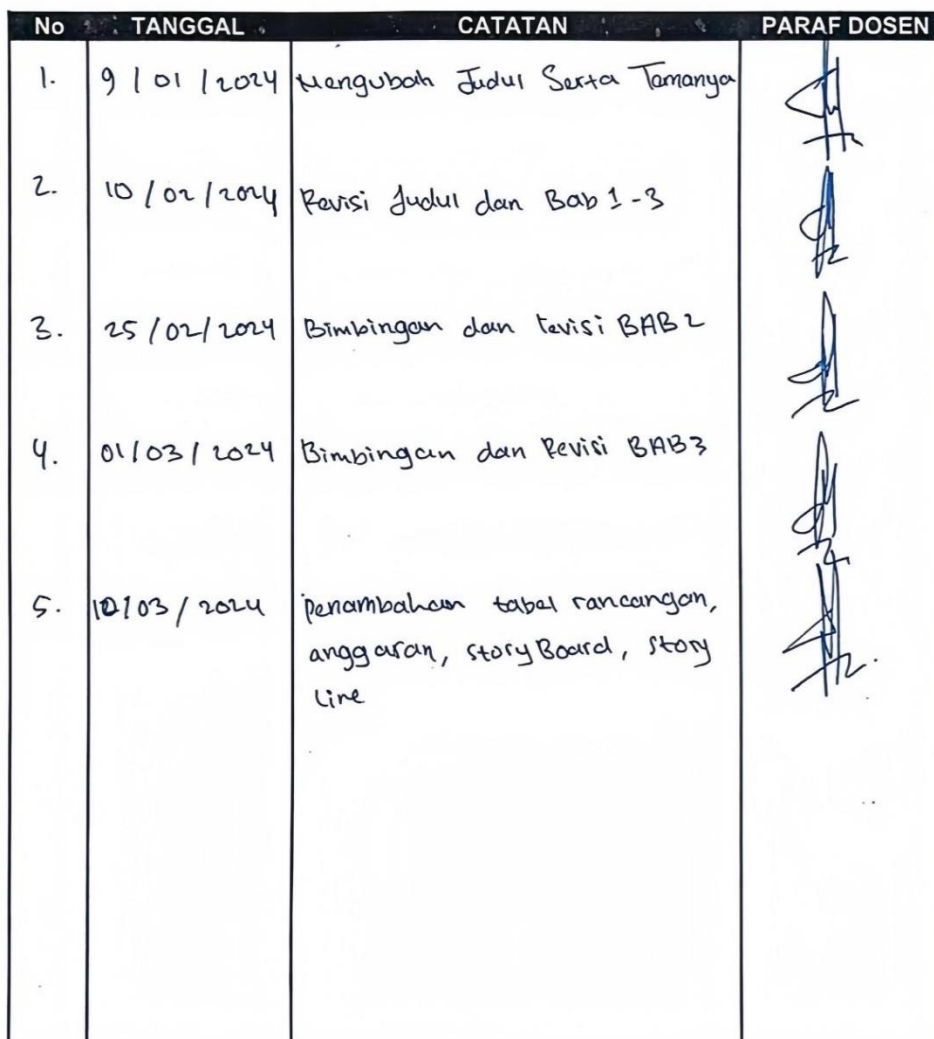 No TANGGAL CATATAN PARAF DOSEN
1. 9/01/2024 Mengubah Judul Serta Temanya
2. 10/02/2024 Revisi Judul dan Bab 1-3
3. 25/02/2024 Bimbingan dan revisi BAB 2
4. 01/03/2024 Bimbingan dan Revisi BAB3
5. 10/03/2024 Penambahan tabel rancangan,
anggaran, story Board, story
Line